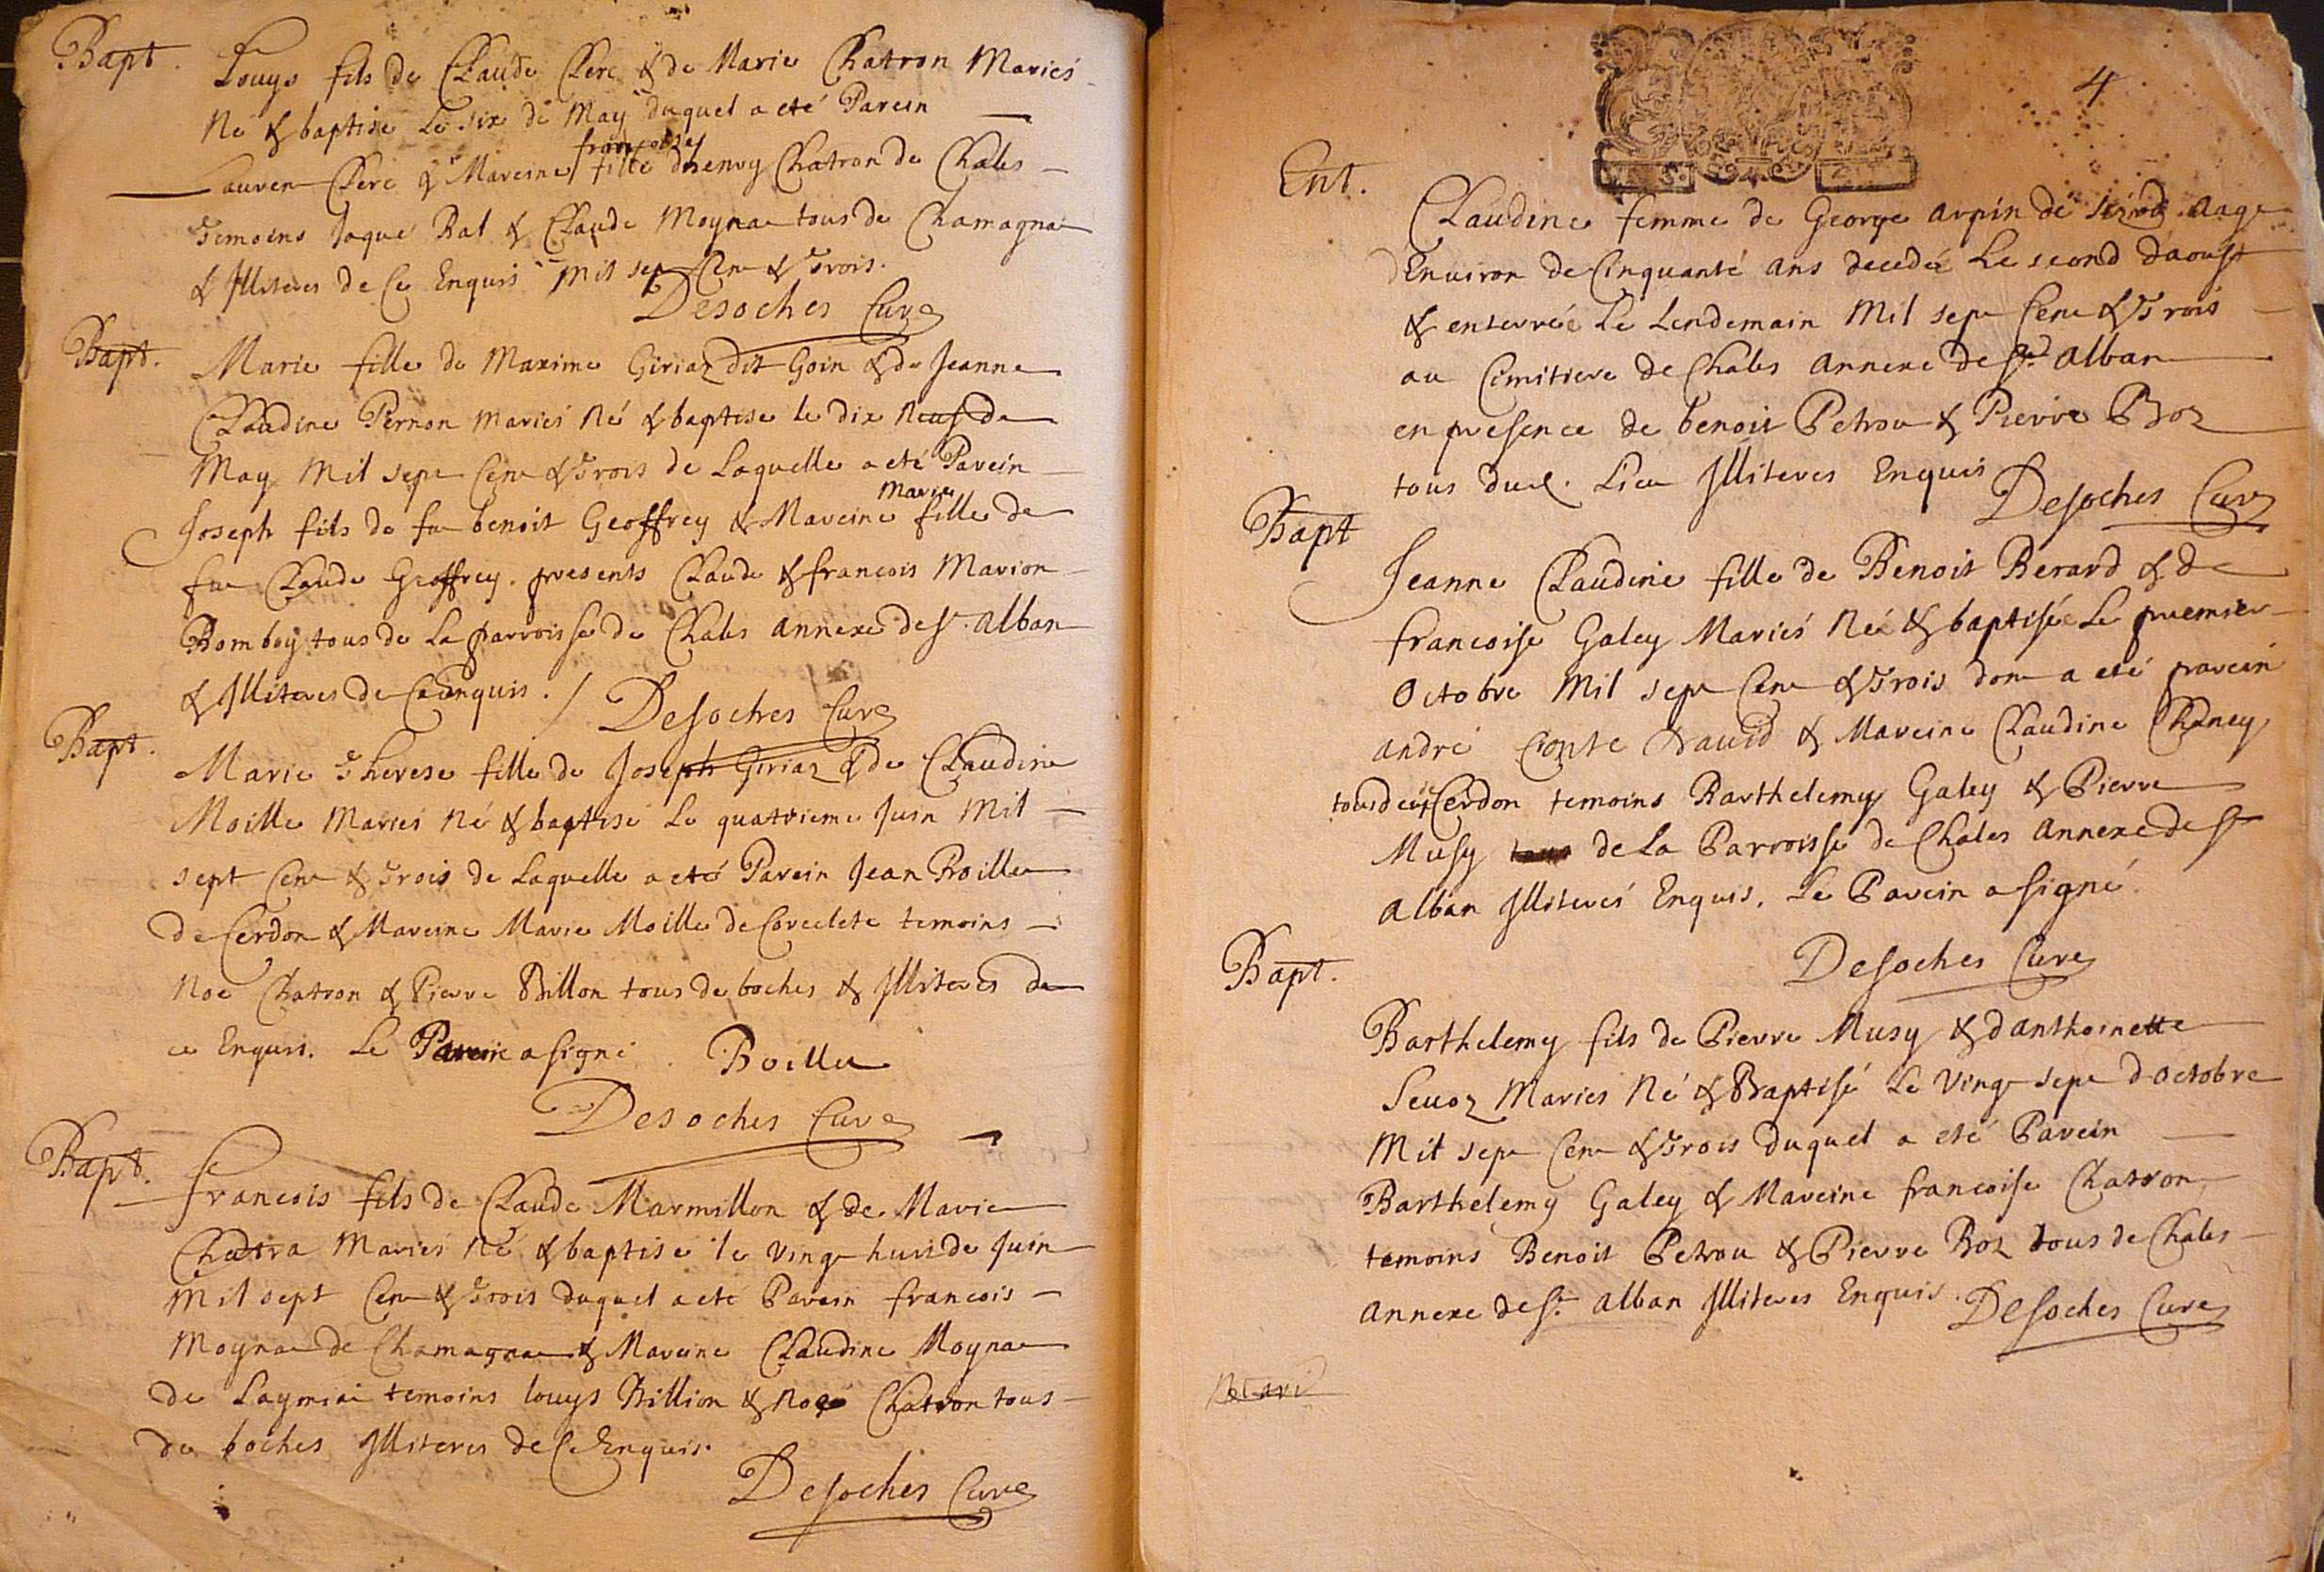 Bapt. Louys fils de Claude Clerc & de Marie Chatron Mariés
Né & baptisé Le six de May duquel a eté Parein
françoise
Lauren Clerc & Mareine fille dhenry Chatron de Chales
Temoins Jaque Rat & Claude Moyna tous de Chamagna
& Illiteres de Ce Enquis Mil sep Cen & Trois.
Desoches Curé
Bapt. Marie fille de Maxime Giriaz dit Goin & de Jeanne
Claudine Pernon mariés Né & baptisé le dix neuf de
May Mil sept Cen & Trois de Laquelle a eté Parein
Marie
Joseph fils de fu benoit Geoffrey & Mareine fille de
fu Claude Geoffrey. presents Claude & francois Marion
Bomboy tous de La parroisse de Chales annexe de St. alban
& Illiteres de Ce Enquis. / Desoches Curé
Bapt. Marie Therese fille de Joseph Giriaz & de Claudine
Moille Mariés Né & baptisé Le quatrieme Juin Mil
sept Cen & Trois de Laquelle a eté Parein Jean Boille
de Cerdon & Mareine Marie Moille de temoins
Noé Chatron & Pierre Billon tous de boches & Illiteres de
ce Enquis. Le Parein a signé. Boille
Desoches Curé
Bapt. francois fils de Claude Marmillon & de Marie
Chatra Mariés Né & baptisé le Ving huit de Juin
Mil sept Cen & Trois duquel a eté Parein francois
Moyna de Chamagna & Mareine Claudine Moyna
de temoins louys Billion & Noé Chatron tous
de boches Illiteres de Ce Enquis.
Desoches Curé
4
Ent. Claudine femme de George arpin de aage
dEnviron de Cinquante ans decedée Le second daoust
& enterrée Le Lendemain Mil sept Cen & Trois
au Cimitiere de Chales annexe de St. alban
en presence de benoit Petrou & Pierre Boz
tous dud. Lieu Illiteres Enquis Desoches Curé
Bapt Jeanne Claudine fille de Benoit Berard & de
francoise Galey Mariés Née & baptisée Le premier
Octobre Mil sept Cen & Trois don a eté parein
andré Conte dauid & Mareine Claudine Chaney
tous deux Cerdon temoins Barthelemy Galey & Pierre
Musy de La Parroisse de Chales annexe de St
alban Illiterés Enquis. Le Parein a signé.
Desoches Curé
Bapt. Barthelemy fils de Pierre Musy & danthoinette
Seuoz Mariés Né & Baptisé Le Ving sept d'octobre
Mil sept Cen & Trois duquel a eté Parein
Barthelemy Galey & Mareine francoise Chatron
temoins Benoit Petrou & Pierre Boz tous de Chales
annexe de St. alban Illiteres Enquis. Desoches Curé